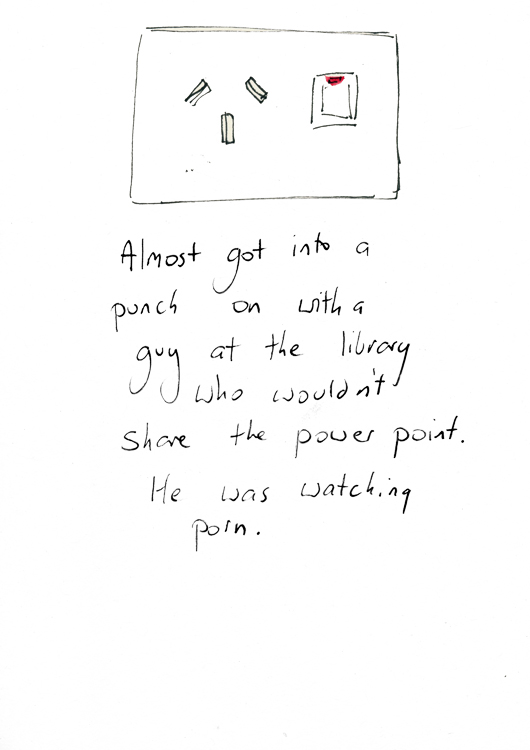 Almost got into a
punch on with a
guy at the library
who wouldn't
share the power point.
He was watching
porn.